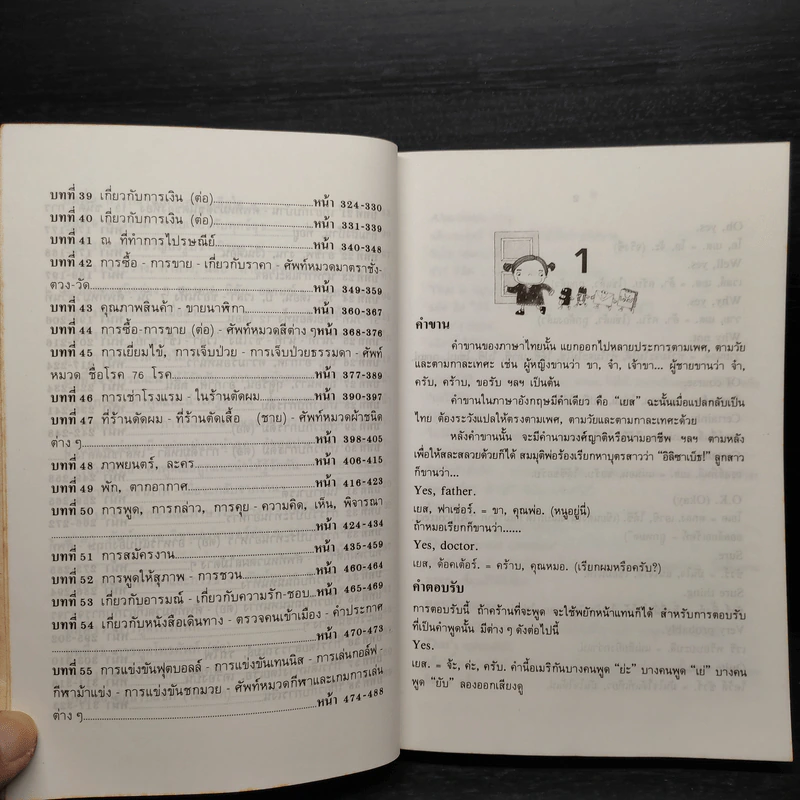 บทที่ 39 เกี่ยวกับการเงิน (ต่อ)..........................หน้า 324-330
บทที่ 40 เกี่ยวกับการเงิน (ต่อ)..........................หน้า 331-339
บทที่ 41 ณ ที่ทำการไปรษณีย์..........................หน้า 340-348
บทที่ 42 การซื้อ - การขาย - เกี่ยวกับราคา - ศัพท์หมวดมาตราชั่ง-
ตวง-วัด..........................หน้า 349-359
บทที่ 43 คุณภาพสินค้า - ขายนาฬิกา..........................หน้า 360-367
บทที่ 44 การซื้อ-การขาย (ต่อ) - ศัพท์หมวดสีต่าง ๆ หน้า 368-376
บทที่ 45 การเยี่ยมไข้, การเจ็บป่วย - การเจ็บป่วยธรรมดา - ศัพท์
หมวด ชื่อโรค 76 โรค..........................หน้า 377-389
บทที่ 46 การเช่าโรงแรม - ในร้านตัดผม..........................หน้า 390-397
บทที่ 47 ที่ร้านตัดผม - ที่ร้านตัดเสื้อ (ชาย) - ศัพท์หมวดผ้าชนิด
ต่าง ๆ..........................หน้า 398-405
บทที่ 48 ภาพยนตร์, ละคร..........................หน้า 406-415
บทที่ 49 พัก, ตากอากาศ..........................หน้า 416-423
บทที่ 50 การพูด, การกล่าว, การคุย - ความคิด, เห็น, พิจารณา
..........................หน้า 424-434
บทที่ 51 การสมัครงาน..........................หน้า 435-459
บทที่ 52 การพูดให้สุภาพ - การชวน..........................หน้า 460-464
บทที่ 53 เกี่ยวกับอารมณ์ - เกี่ยวกับความรัก-ชอบ...หน้า 465-469
บทที่ 54 เกี่ยวกับหนังสือเดินทาง - ตรวจคนเข้าเมือง - คำประกาศ
..........................หน้า 470-473
บทที่ 55 การแข่งขันฟุตบอลล์ - การแข่งขันเทนนิส - การเล่นกอล์ฟ -
กีฬาม้าแข่ง - การแข่งขันชกมวย - ศัพท์หมวดกีฬาและเกมการเล่น
ต่าง ๆ..........................หน้า 474-488
1
คำขาน
คำขานของภาษาไทยนั้น แยกออกไปหลายประการตามเพศ, ตามวัย
และตามกาละเทศะ เช่น ผู้หญิงขานว่า ขา, จ๋า, เจ้าขา... ผู้ชายขานว่า จ๋า,
ครับ, คร้าบ, ขอรับ ฯลฯ เป็นต้น
คำขานในภาษาอังกฤษมีคำเดียว คือ “เยส” ฉะนั้นเมื่อแปลกลับเป็น
ไทย ต้องระวังแปลให้ตรงตามเพศ, ตามวัยและตามกาละเทศะด้วย
หลังคำขานนั้น จะมีคำนามวงศ์ญาติหรือนามอาชีพ ฯลฯ ตามหลัง
เพื่อให้สละสลวยด้วยก็ได้ สมมุติพ่อร้องเรียกหาบุตรสาวว่า “อิลิซาเบ็ธ!” ลูกสาว
ก็ขานว่า...
Yes, father.
เยส, ฟาเซ่อร์. = ขา, คุณพ่อ. (หนูอยู่นี่)
ถ้าหมอเรียกก็ขานว่า......
Yes, doctor.
เยส, ด้อคเต้อร์. = คร้าบ, คุณหมอ. (เรียกผมหรือครับ?)
คำตอบรับ
การตอบรับนี้ ถ้าคร้านที่จะพูด จะใช้พยักหน้าแทนก็ได้ สำหรับการตอบรับ
ที่เป็นคำพูดนั้น มีต่าง ๆ ดังต่อไปนี้
Yes.
เยส. = จ้ะ, ค่ะ, ครับ. คำนี้อเมริกันบางคนพูด “ย่ะ” บางคนพูด “เย่” บางคน
พูด “ยับ” ลองออกเสียงดู